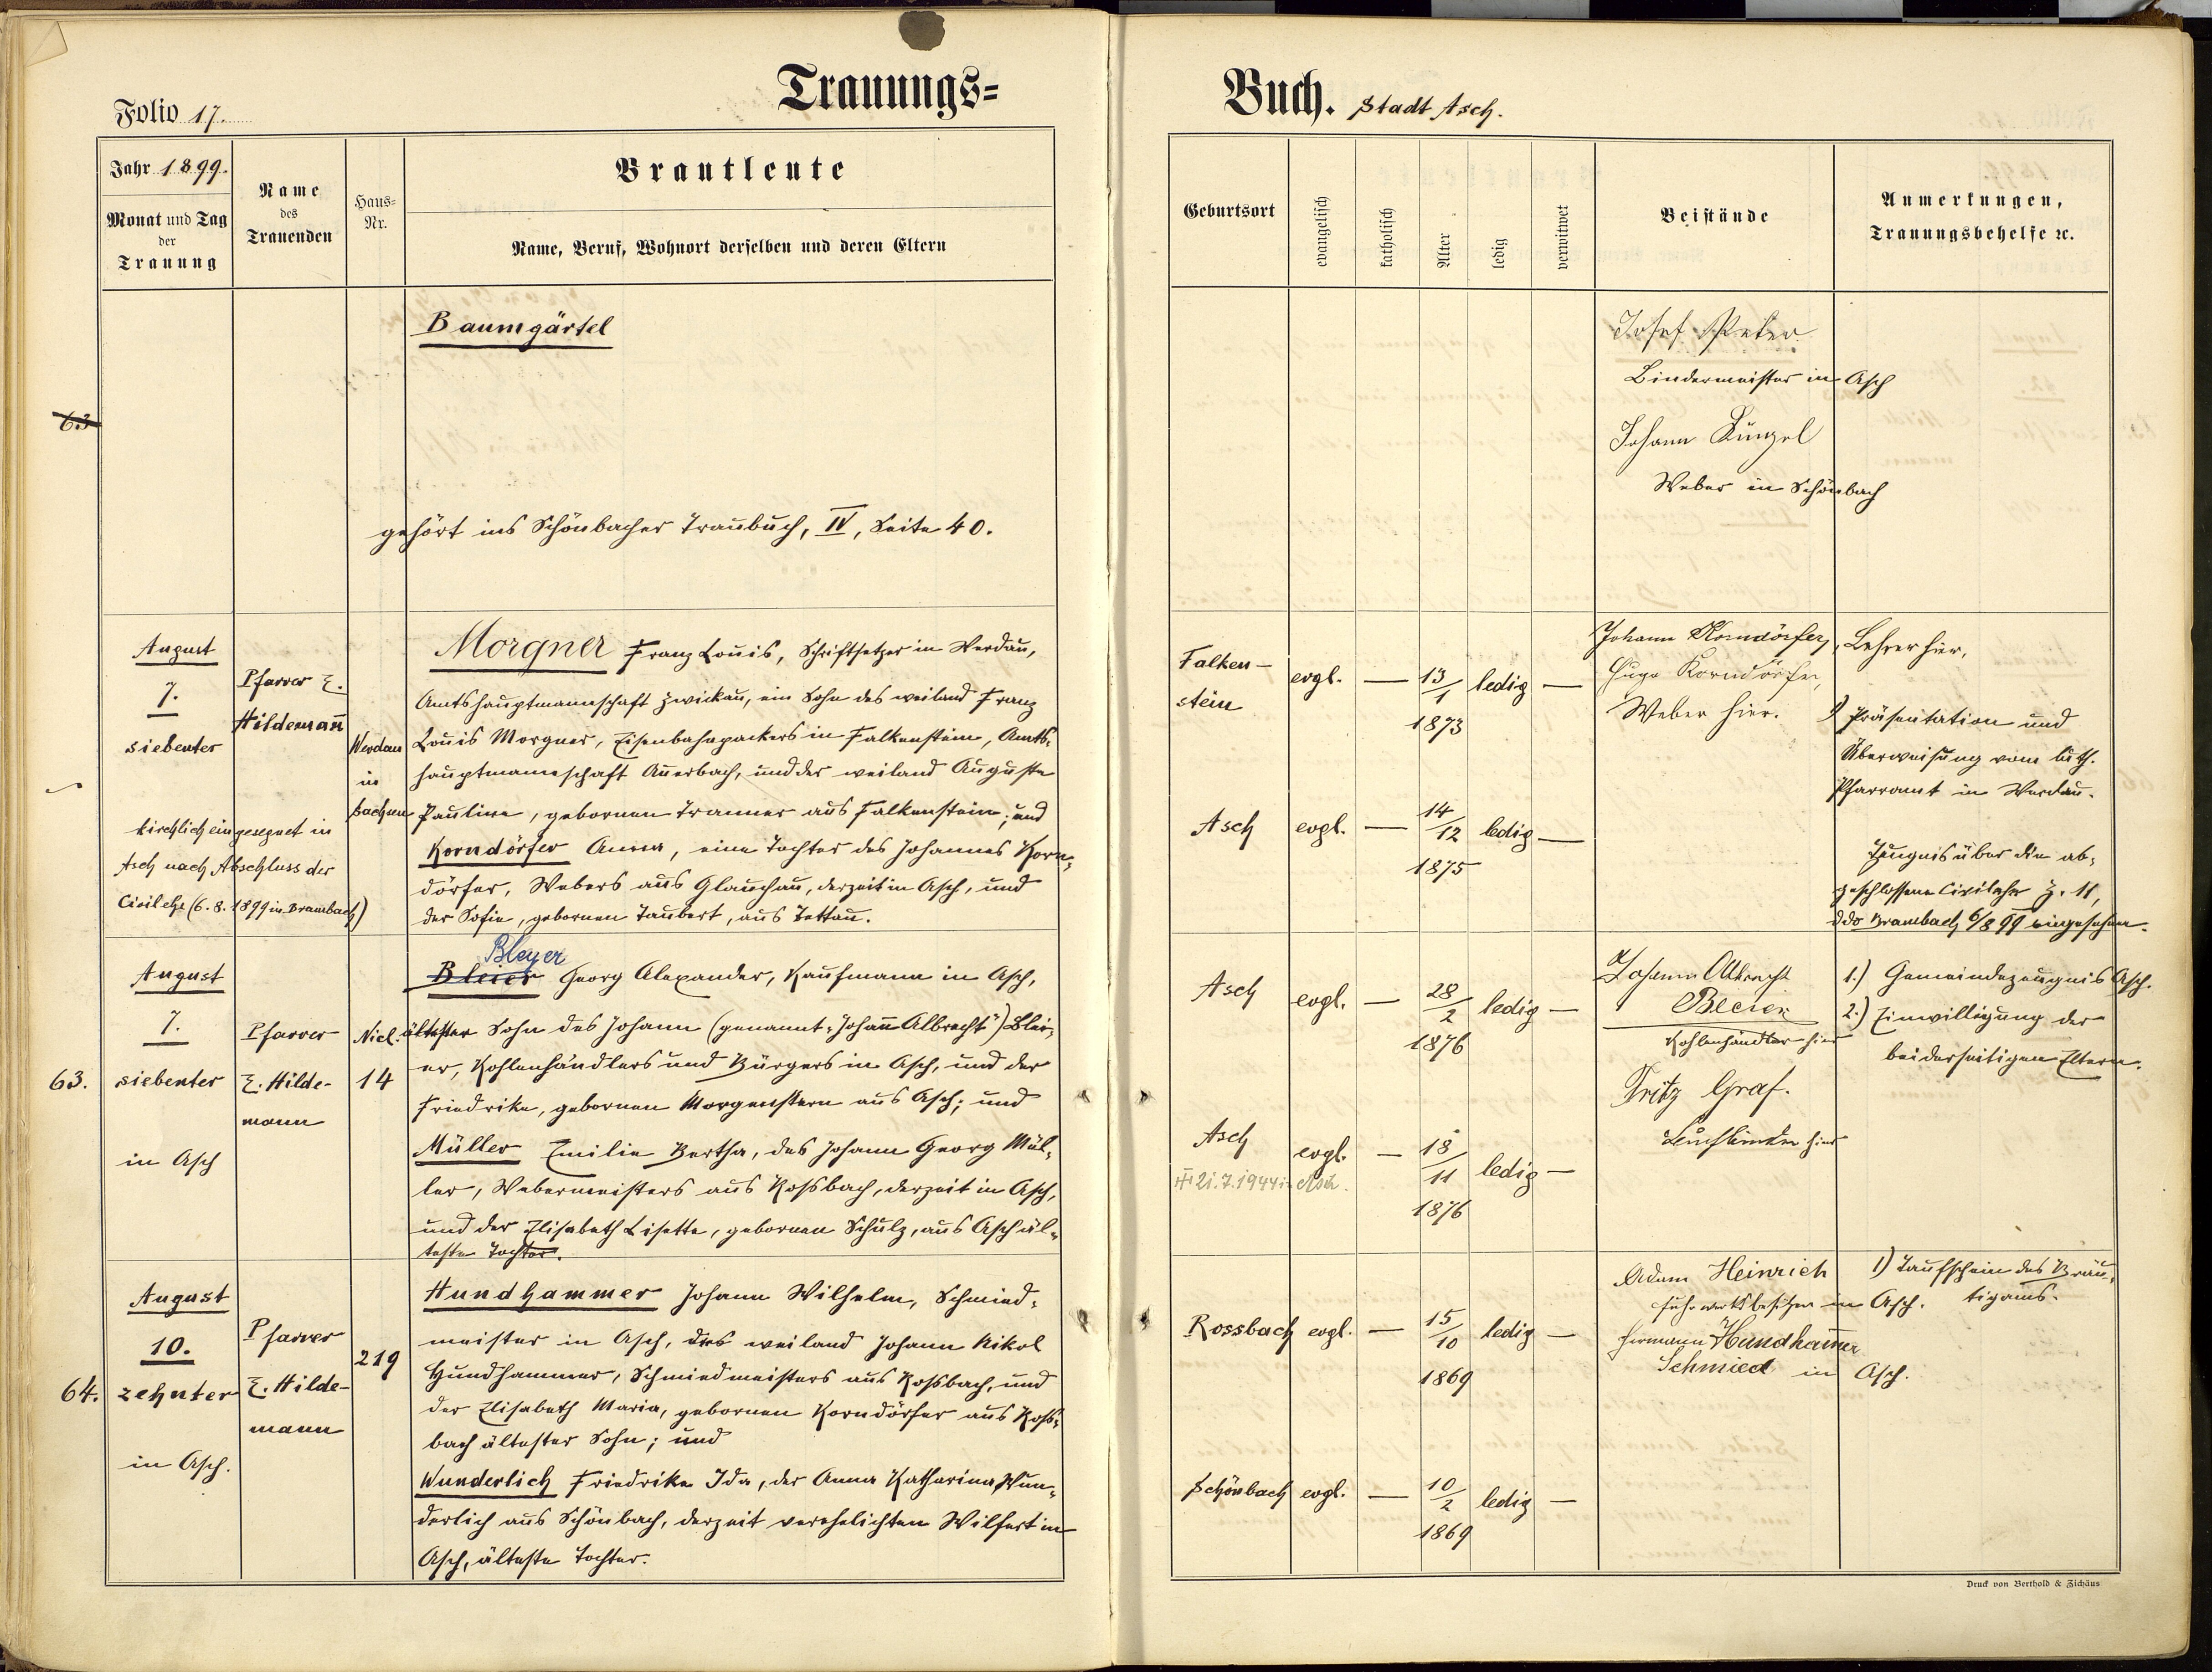 Trauungs=
Folio 17.
Jahr 1899.
Monat und Tag
der
Trauung
Name
des
Trauenden
Haus=
Nr.
Brautleute
Name, Beruf, Wohnort derselben und deren Eltern
Baumgärtel
63
gehört ins Schönbacher Traubuch, IV, Seite 40.
August
7.
siebenter
kirchlich eingesegnet in
Asch nach Abschluss der
Civilehe (6. 8. 1899 in Brambach)
Pfarrer E.
Hildemañ
Werdau
in
Sachsen
Morgner Franz Louis, Schriftsetzer in Werdau,
Amtshauptmannschaft Zwickau, ein Sohn des weiland Franz
Louis Morgner, Eisenbahnpackers in Falkenstein, Amts-
hauptmannschaft Auerbach, und der weiland Auguste
Pauline, gebornen Tranner aus Falkenstein; und
Korndörfer Anna, eine Tochter des Johannes Korn-
dörfer, Webers aus Glauchau, derzeit in Asch, und
der Sofie, gebornen Taubert, aus Tettau.
63.
August
7.
siebenter
in Asch
Pfarrer
E. Hilde-
mann
Nicl.
14
Bleyer
Bleier Georg Alexander, Kaufmann in Asch,
ältester Sohn des Johann (genannt „Johañ Albrecht") Blei-
er, Kohlenhändlers und Bürgers in Asch, und der
Friedrike, gebornen Morgenstern aus Asch; und
Müller Emilie Bertha, des Johann Georg Mül-
ler, Webermeisters aus Rossbach, derzeit in Asch,
und der Elisabeth Lisette, gebornen Schulz, aus Asch äl-
teste Tochter.
64.
August
10.
zehnter
in Asch.
Pfarrer
E. Hilde-
mann
219
Hundhammer Johann Wilhelm, Schmied-
meister in Asch, des weiland Johann Nikol
Hundhammer, Schmiedmeisters aus Rossbach, und
der Elisabeth Maria, gebornen Korndörfer aus Ross-
bach ältester Sohn; und
Wunderlich Friedrike Ida, der Anna Katharina Wun-
derlich aus Schönbach, derzeit verehelichten Wilfert in
Asch, älteste Tochter.
Buch. Stadt Asch.
Geburtsort
evangelisch
katholisch
Alter
ledig
verwitwet
Beistände
Anmerkungen,
Trauungsbehelfe ꝛc.
Josef Peter
Bindermeister in Asch
Johann Künzel
Weber in Schönbach
Falken-
stein
evgl. — 13/1 ledig —
1873
Johann Korndörfer, Lehrer hier,
Hugo Korndörfer,
Weber hier.
1) Präsentation und
Überweisung vom luth.
Pfarramt in Werdau.
Asch evgl. — 14/12 ledig —
1875
Zeugnis über die ab-
geschlossene Civilehe Z. 11,
ddo Brambach 6/8 99 eingesehen.
Asch evgl. — 28/2 ledig —
1876
Johann Albrecht
Bleier
Kohlenhändler hier
Fritz Graf.
Buchbinder hier
1.) Gemeindezeugnis Asch.
2.) Einwilligung der
beiderseitigen Eltern.
Asch evgl. — 18/11 ledig —
1876
21.7.1944 in Asch.
Rossbach evgl. — 15/10 ledig —
1869
Adam Heinrich
Fuhrwerksbesitzer in Asch.
Hermann Hundham̄er
Schmied in Asch.
1) Taufschein des Bräu-
tigams.
Schönbach evgl. — 10/2 ledig —
1869
Druck von Berthold & Zichäus